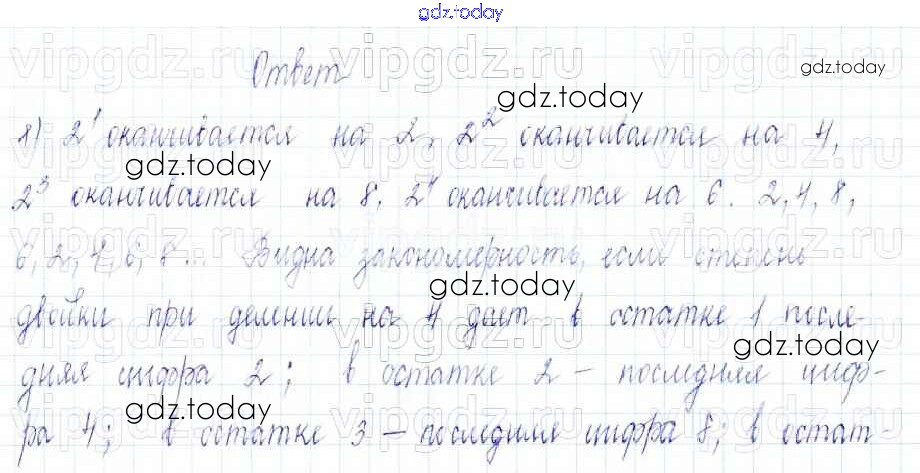 gdz.today
Ответ
gdz.today
gdz.today
1) 2¹ оканчивается на 2, 2² оканчивается на 4,
gdz.today
2³ оканчивается на 8, 2⁴ оканчивается на 6. 2,4,8,
6, 2, 4, 6, 8... Видна закономерность, если степень
gdz.today
двойки при делении на 4 дает в остатке 1 после-
gdz.today
дняя цифра 2; в остатке 2 – последняя циф-
gdz.today
ра 4; в остатке 3 – последняя цифра 8; в остат-
vipgdz.ru vipgdz.ru vipgdz.ru